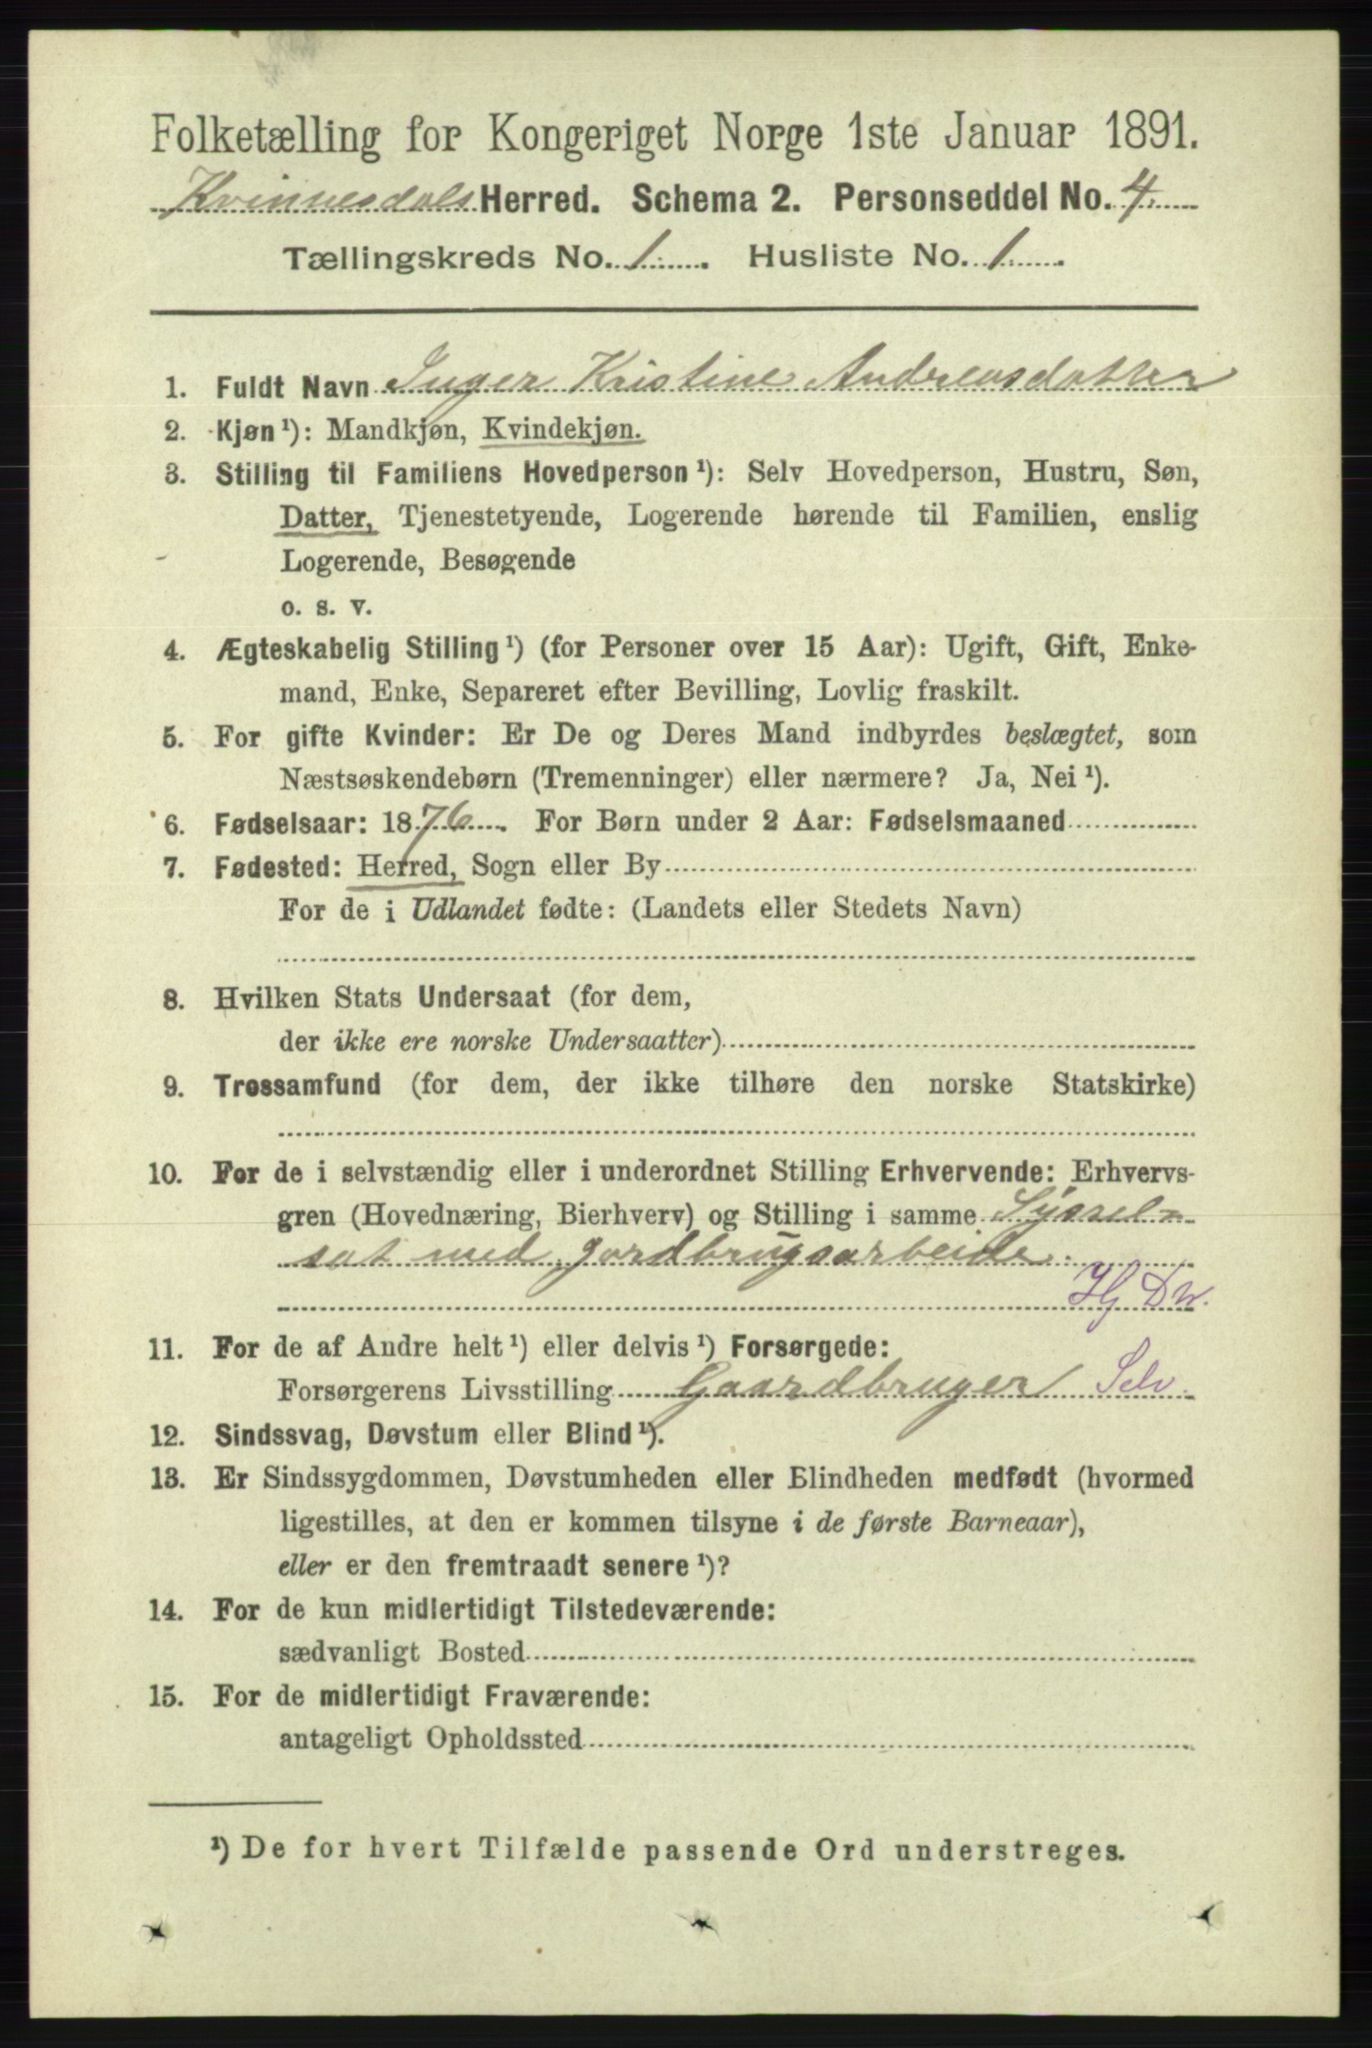 Folketælling for Kongeriget Norge 1ste Januar 1891.
Kvinnesdals Herred. Schema 2. Personseddel No. 4
Tællingskreds No. 1. Husliste No. 1.
1. Fuldt Navn Inger Kristine Andreasdatter
2. Kjøn¹): Mandkjøn, Kvindekjøn.
3. Stilling til Familiens Hovedperson¹): Selv Hovedperson, Hustru, Søn,
Datter, Tjenestetyende, Logerende hørende til Familien, enslig
Logerende, Besøgende
o. s. v.
4. Ægteskabelig Stilling¹) (for Personer over 15 Aar): Ugift, Gift, Enke-
mand, Enke, Separeret efter Bevilling, Lovlig fraskilt.
5. For gifte Kvinder: Er De og Deres Mand indbyrdes beslægtet, som
Næstsøskendebørn (Tremenninger) eller nærmere? Ja, Nei¹).
6. Fødselsaar: 1876. For Børn under 2 Aar: Fødselsmaaned
7. Fødested: Herred, Sogn eller By
For de i Udlandet fødte: (Landets eller Stedets Navn)
8. Hvilken Stats Undersaat (for dem,
der ikke ere norske Undersaatter)
9. Trossamfund (for dem, der ikke tilhøre den norske Statskirke)
10. For de i selvstændig eller i underordnet Stilling Erhvervende: Erhvervs-
gren (Hovednæring, Bierhverv) og Stilling i samme Syssel-
sat med gardbrugsarbeide
Hj Dtr.
11. For de af Andre helt¹) eller delvis¹) Forsørgede:
Forsørgerens Livsstilling Gaardbruger Selv.
12. Sindssvag, Døvstum eller Blind¹).
13. Er Sindssygdommen, Døvstumheden eller Blindheden medfødt (hvormed
ligestilles, at den er kommen tilsyne i de første Barneaar),
eller er den fremtraadt senere¹)?
14. For de kun midlertidigt Tilstedeværende:
sædvanligt Bosted
15. For de midlertidigt Fraværende:
antageligt Opholdssted
¹) De for hvert Tilfælde passende Ord understreges.